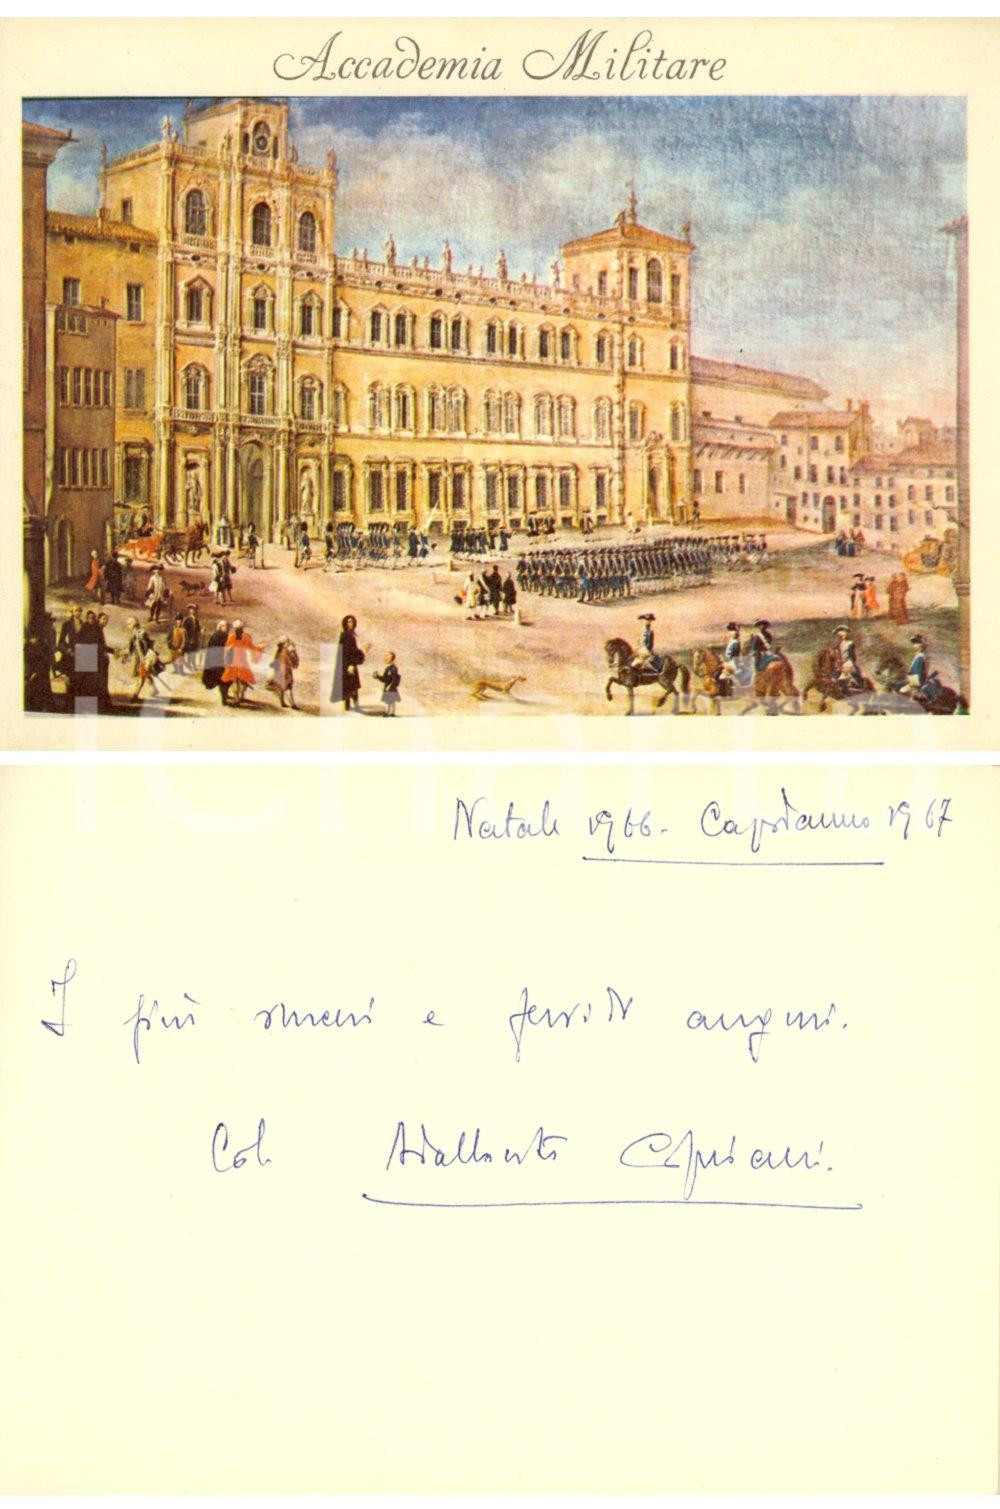 Accademia Militare
iCharta
Natale 1966 - Capodanno 1967
I più sinceri e fervidi auguri.
Col. Adalberto Cipriani.